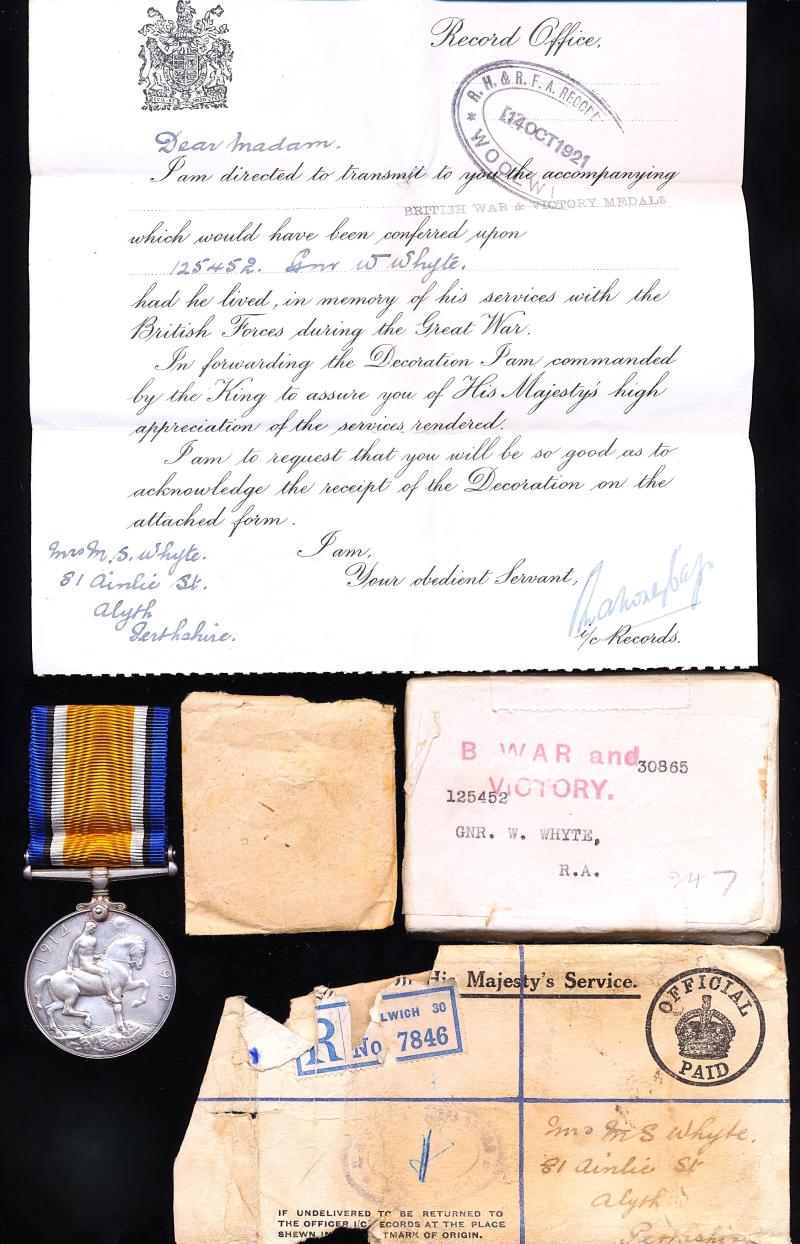 Record Office,
R.H. & R.F.A. RECOR
14 OCT 1921
WOOLWI
Dear Madam.
I am directed to transmit to you the accompanying
BRITISH WAR & VICTORY MEDALS
which would have been conferred upon
125452. Gnr W Whyte.
had he lived, in memory of his services with the
British Forces during the Great War.
In forwarding the Decoration I am commanded
by the King to assure you of His Majesty's high
appreciation of the services rendered.
I am to request that you will be so good as to
acknowledge the receipt of the Decoration on the
attached form.
I am,
Your obedient Servant,
i/c Records.
Mrs M. S. Whyte.
81 Ainlie St.
Alyth
Perthshire.
1914 1918
B WAR and
30865
VICTORY.
125452
GNR. W. WHYTE,
R.A.
247
His Majesty's Service.
OFFICIAL
PAID
R
LWICH 30
No 7846
Mrs M S Whyte.
81 Ainlie St
Alyth
Perthshire
IF UNDELIVERED TO BE RETURNED TO
THE OFFICER I/C ECORDS AT THE PLACE
SHEWN IN TMARK OF ORIGIN.